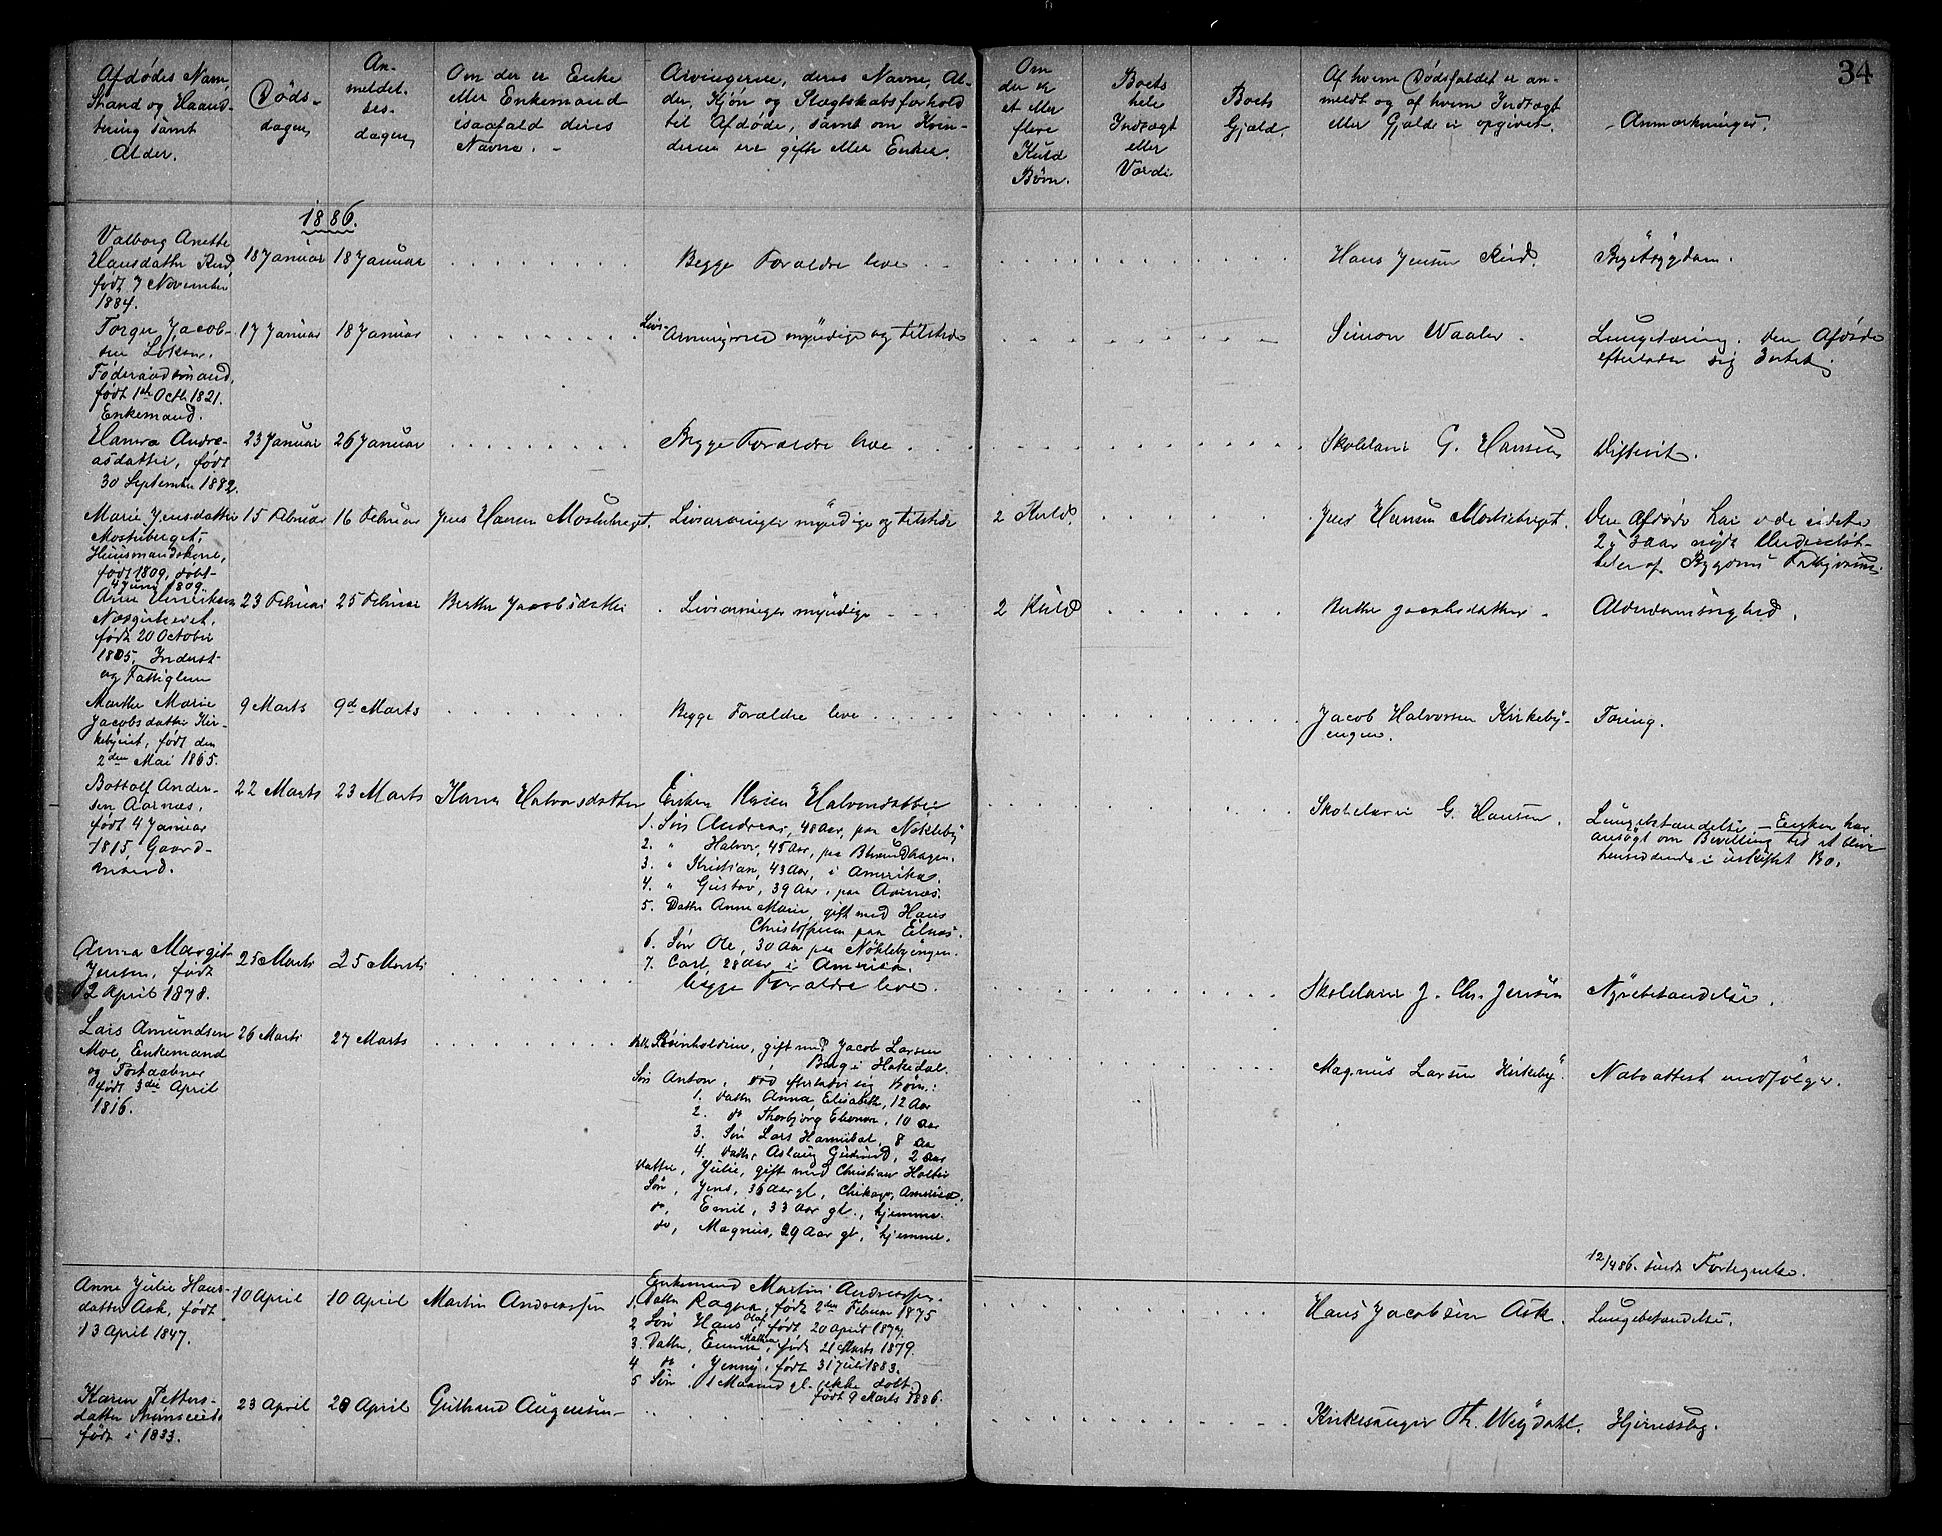 34
Afdødes Navn,
Stand og Haand-
tering samt
Alder.
Døds-
dagen
An-
meldel-
ses-
dagen
Om der er Enke
eller Enkemand
isaafald deres
Navne.
Arvingerne, deres Navne, Al-
der, Kjøn og Slægtskabsforhold
til Afdøde, samt om Kvin-
derne ere gifte eller Enker.
Om
der er
et eller
flere
Kuld
Børn.
Boets
hele
Indtægt
eller
Værdi
Boets
Gjæld.
Af hvem Dødsfaldet er an-
meldt og af hvem Indtægt
eller Gjæld er opgivet.
Anmærkninger.
1886.
Valborg Anette
Hansdatter
født 7 November
1884.
18 Januar
18 Januar
Begge Forældre leve
Hans Jensen
Torger Jacob-
sen Løken.
Føderaadsmand,
født 1ste Octb. 1821.
Enkemand.
17 Januar
18 Januar
Livs-
Arvingerne myndige og tilstede
Simon Waaler.
Lungetæring. Den Afdøde
efterlader sig
Hanna Andre-
asdatter, født
30 September 1882.
23 Januar
26 Januar
Begge Forældre leve
Skolelærer G. Hansen
Difterit.
Marie Jensdatter
Mosteberget,
Huusmandskone,
født 1809, døbt
4 Juny 1809
15 Februar
16 Februar
Jens Hansen Mosteberget.
Livsarvinger myndige og tilstede
2 Kuld.
Jens Hansen Mosteberget.
Den Afdøde har i de sidste
2 à 3 Aar nydt Understøt-
telse af Bygdens Fattigvæsen.
Arne Henriksen
født 20 October
1805. Inderst
og Fattiglem
23 Februar
25 Februar
Berthe Jacobsdatter
Livsarvinger myndige
2 Kuld
Berthe Jacobsdatter
Alderdomssvaghed.
Marthe Marie
Jacobsdatter Kir-
kebyeiet, født den
2den Mai 1865.
9 Marts
9d Marts
Begge Forældre leve
Jacob Halvorsen Kirkeby-
engen.
Tæring.
Bottolf Ander-
sen Aarnæs,
født 4 Januar
1815, Gaard-
mand.
22 Marts
23 Marts
Karen Halvorsdatter
Enken Karen Halvorsdatter
1. Søn Andreas, 48 Aar, paa Nøkleby
2. " Halvor, 45 Aar, paa
3. " Kristian, 43 Aar, i Amerika.
4. " Gustav, 39 Aar, paa Aarnæs.
5. Datter Anne Marie, gift med Hans
Christophersen paa Eilnæs.
6. Søn Ole, 30 Aar paa Nøklebyengen.
7. Carl, 28 Aar i America.
Skolelærer G. Hansen.
Lungebetændelse. — Enken har
ansøgt om Bevilling til at blive
hensiddende i uskiftet Bo.
Anna Margit
Jensen, født
2 April 1878.
25 Marts
25 Marts
begge Forældre leve.
Skolelærer J. Chr. Jensen
Nyrebetændelse.
Lars Amundsen
Moe, Enkemand
og Postaabner
født 3die April
1816.
26 Marts
27 Marts
gift med Jacob Larsen
Berg i Hakedal.
Søn Anton, død efterladt sig Børn:
1. Datter Anna Elisabeth, 12 Aar
2. do Thorbjørg Eleonora, 10 Aar
3. Søn Lars Hannibal, 8 Aar
4. Datter Aslaug Gudrund, 2 Aar
Datter, Julie, gift med Christian Holter
Søn, Jens, 36 Aar gl., Chikago, America.
do, Emil, 33 Aar gl., hjemme.
do, Magnus, 29 Aar gl., hjemme.
Magnus Larsen Kirkeby.
Netoattest medfølger.
12/4 86. sendt Fortegnelse.
Anne Julie Hans-
datter Ask, født
13 April 1847.
10 April
10 April
Martin Andreassen
Enkemand Martin Andreassen.
1. Datter Ragna, født 2den Februar 1875
2 Søn Hans Olaf, født 20 April 1877.
3. Datter, Emma Mathea, født 21 Marts 1879.
4 do, Jenny, født 31 Juli 1883.
5 Søn, 1 Maaned gl. ikke døbt
født 9 Marts 1886.
Hans Jacobsen Ask.
Lungebetændelse.
Karen Petters-
datter
født i 1833.
23 April
28 April
Gulbrand Augensen
Kirkesanger Th. Weydahl.
Hjerneslag.